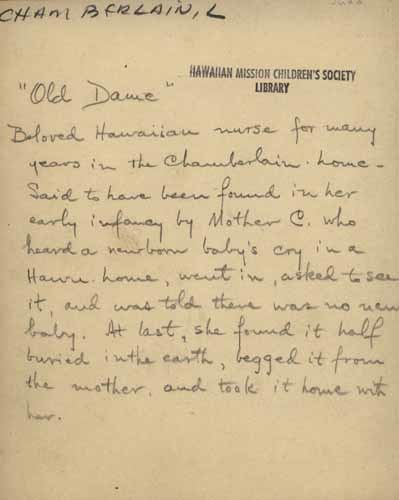 CHAMBERLAIN, L
HAWAIIAN MISSION CHILDREN'S SOCIETY
LIBRARY
"Old Dame"
Beloved Hawaiian nurse for many
years in the Chamberlain home -
Said to have been found in her
early infancy by Mother C. who
heard a newborn baby's cry in a
Hawn. home, went in, asked to see
it, and was told there was no new
baby. At last, she found it half
buried in the earth, begged it from
the mother, and took it home with
her.